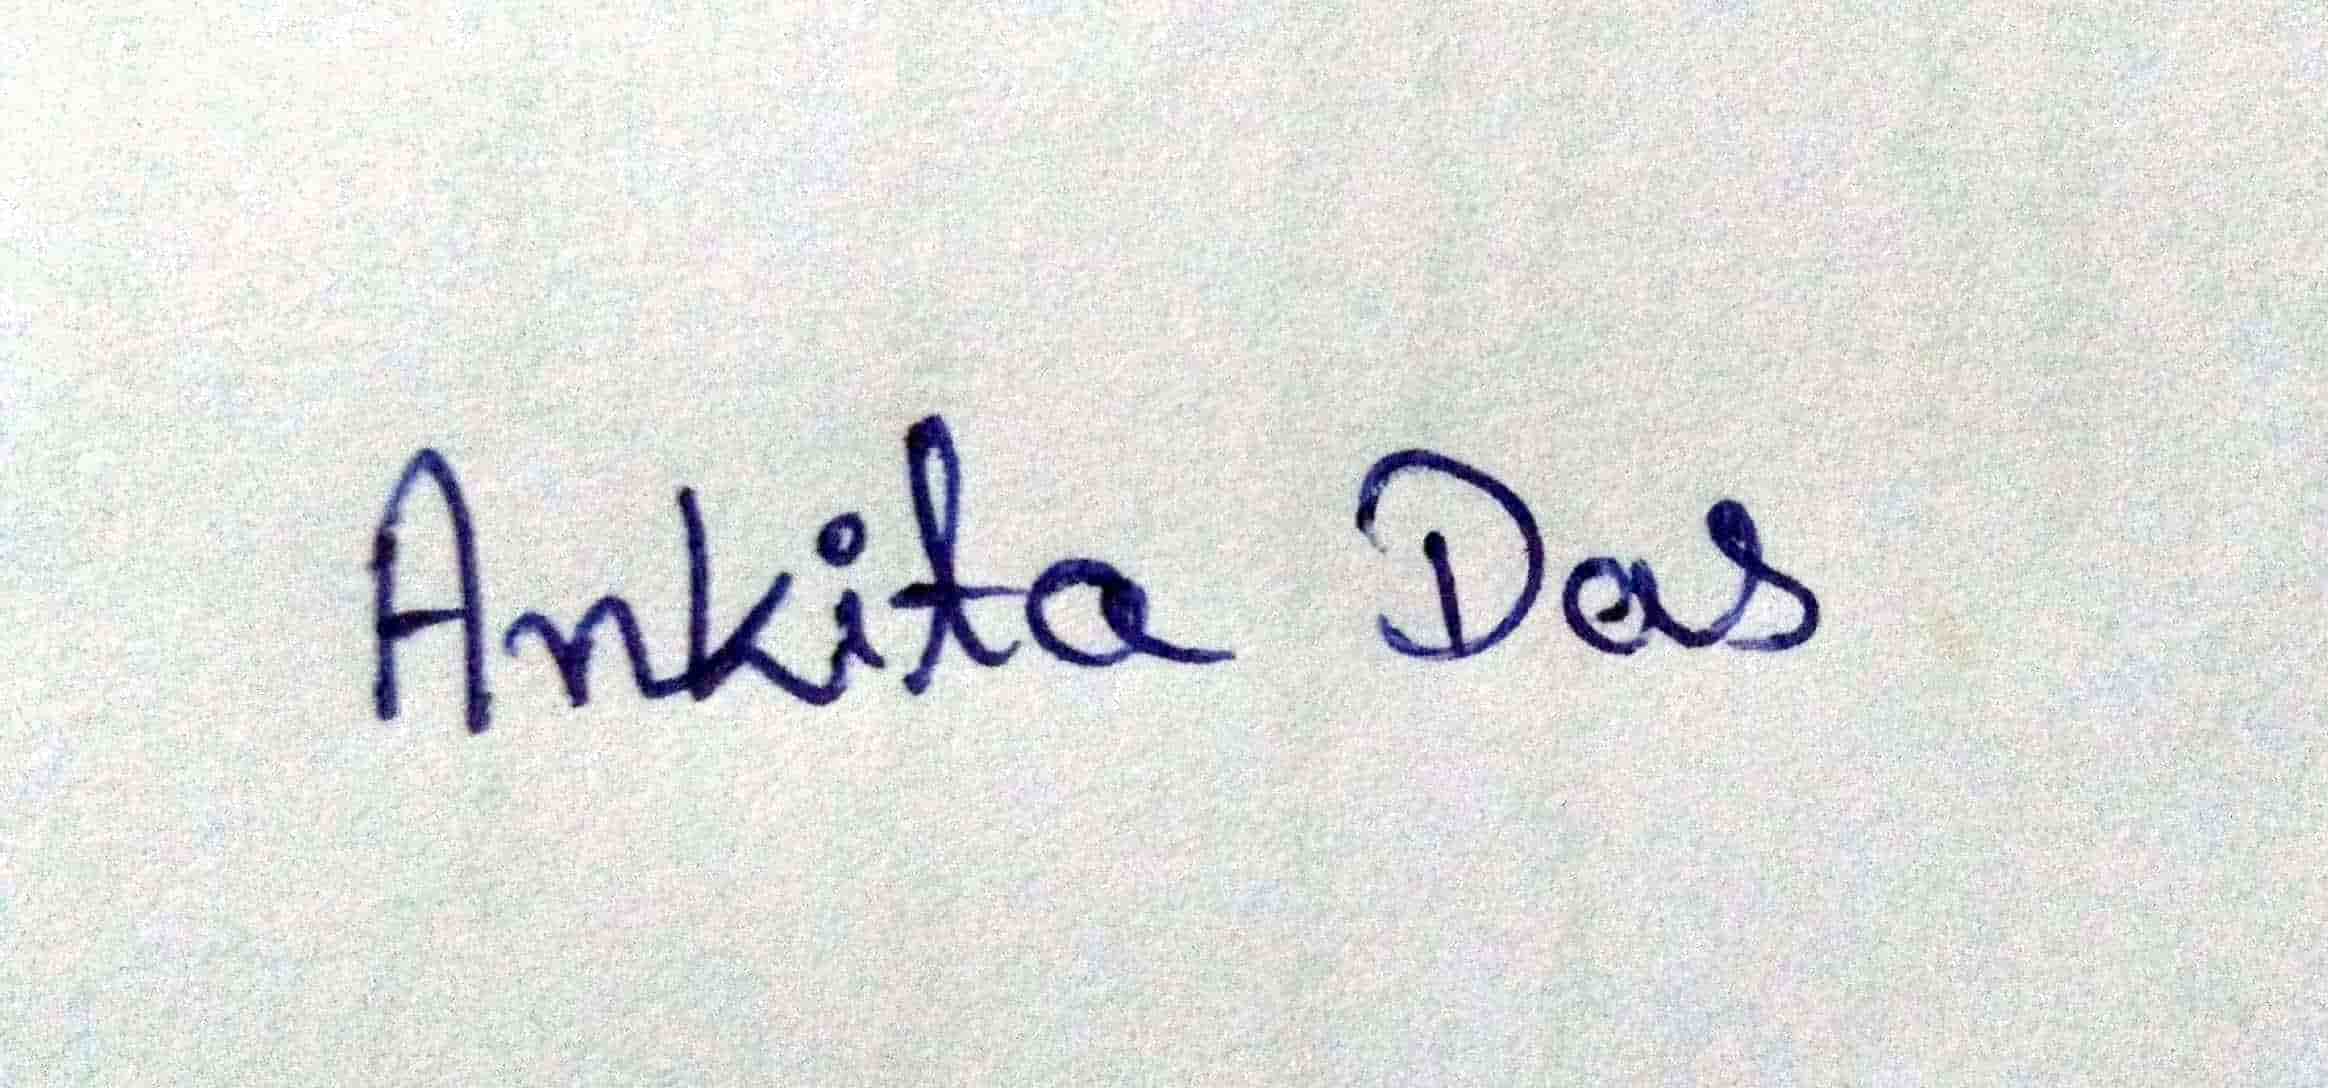 Ankita Das